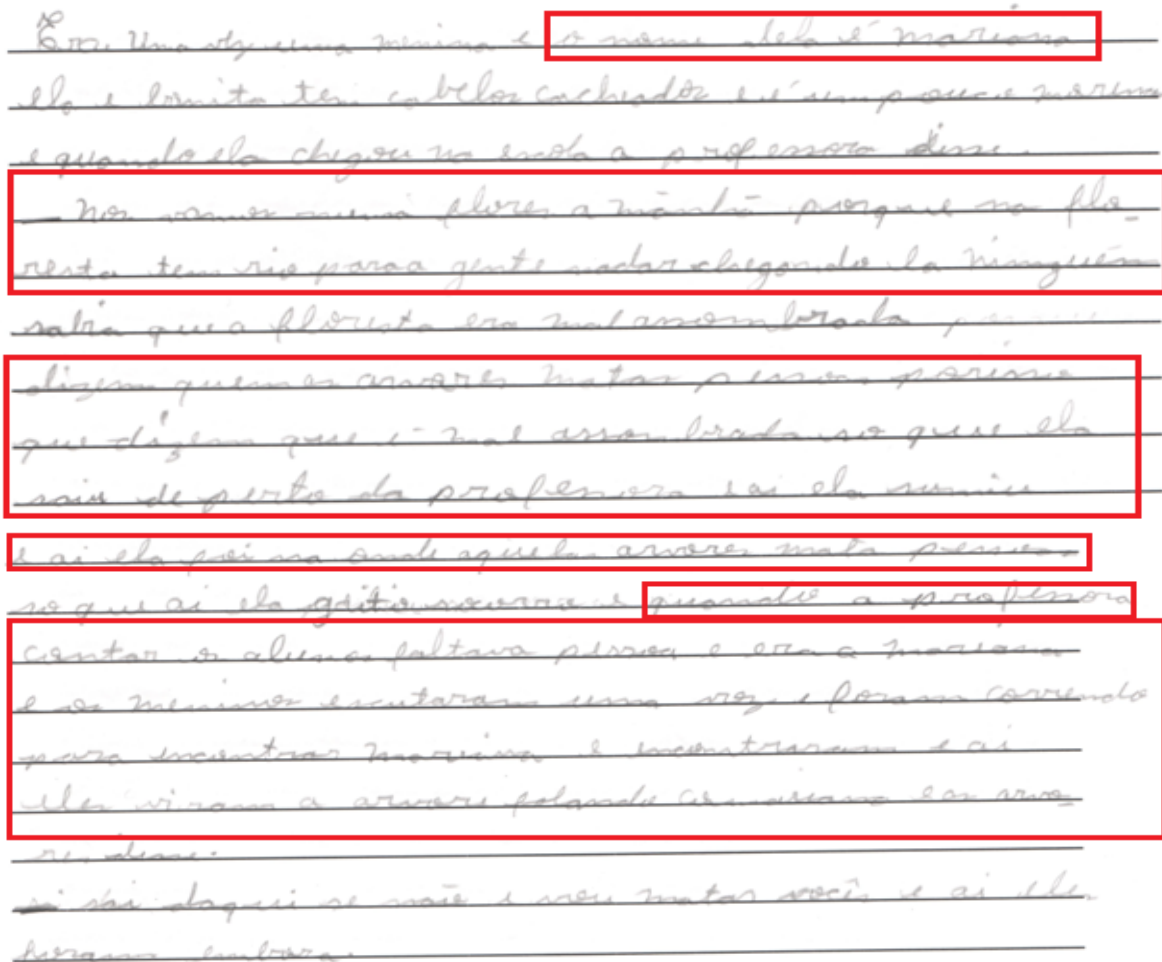 Era Uma vez uma menina e o nome dela é mariana
ela e bonita tem cabelos cacheados e é um pouco morena
e quando ela chegou na escola a professora disse
— nos vamos numa flores a mãnhã porque na flo-
resta tem rio para a gente nadar chegando la ninguém
sabia que a floresta era mal assombrada
dizem que as arvores matas pessoas por isso
que dizem que é mal assombrada so que ela
saiu de perto da professora e ai ela sumiu
e ai ela foi na onde aquelas arvores mata pessoas
so que ai ela grito socorro e quando a professora
contar os alunos faltava pessoa e era a mariana
e os meninos escutaram uma voz e foram correndo
para encontrar mariana e encontraram e ai
eles viram a arvore falando com mariana e as arvo-
res disse.
sai daqui se não e vou matar vocês e ai eles
foram embora.